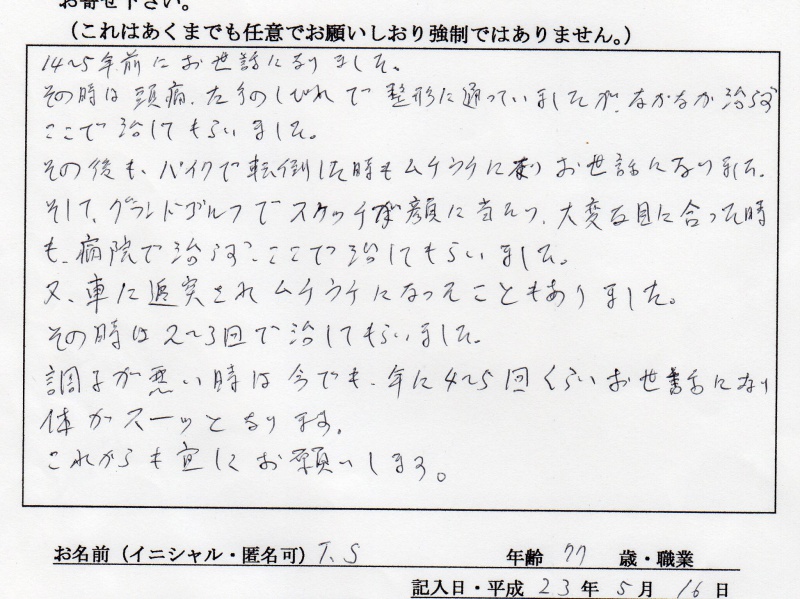 お寄せ下さい。
（これはあくまでも任意でお願いしおり強制ではありません。）
14～5年前にお世話になりました。
その時は頭痛、左手のしびれで整形に通っていましたが、なかなか治らず
ここで治してもらいました。
その後も、バイクで転倒した時もムチウチになりお世話になりました。
そして、グランドゴルフでスティックが顔に当たり、大変な目に合った時
も、病院で治らず、ここで治してもらいました。
又、車に追突されムチウチになったこともありました。
その時は2～3回で治してもらいました。
調子が悪い時は今でも、年に4～5回くらいお世話になり
体がスーッとなります。
これからも宜しくお願いします。
お名前（イニシャル・匿名可） T.S 年齢 77 歳・職業
記入日・平成 23 年 5 月 16 日